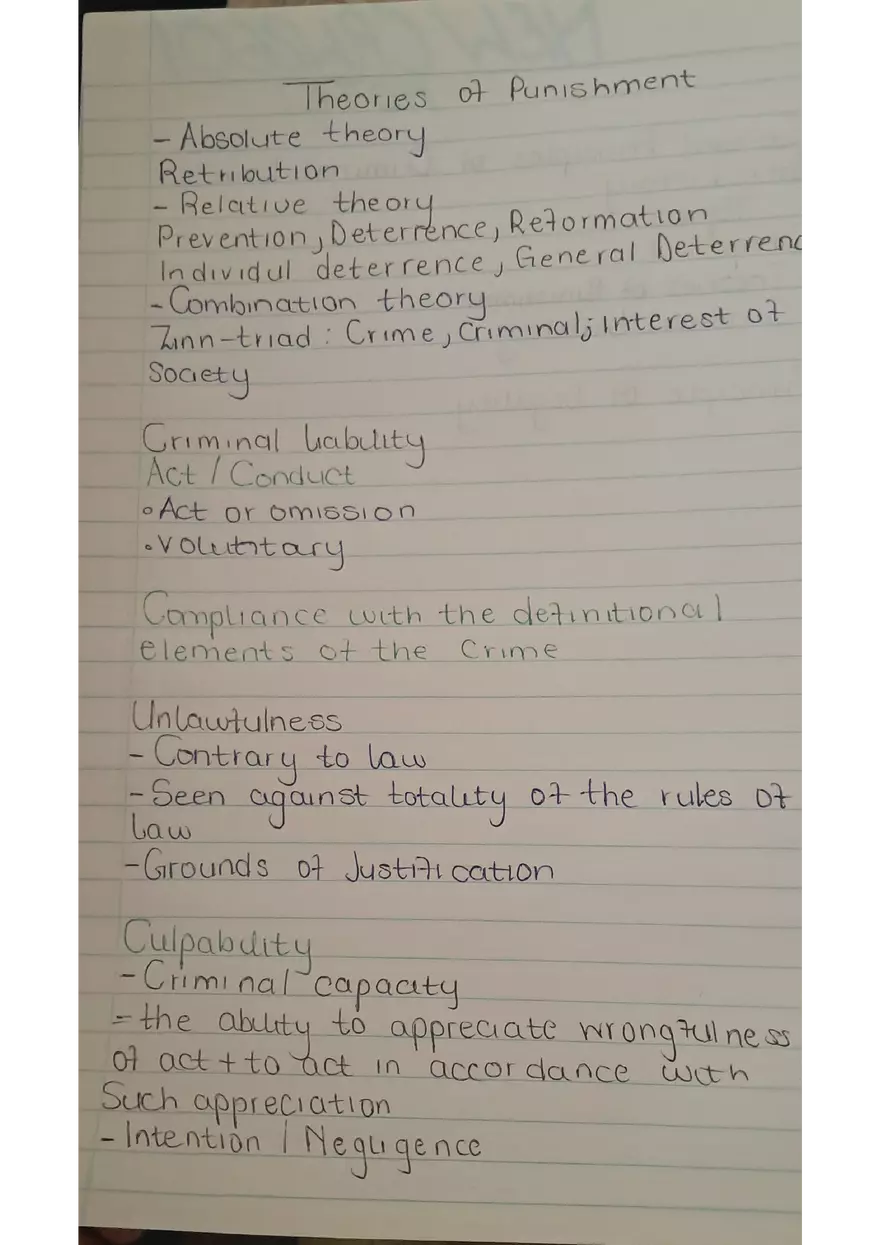 Theories of Punishment
- Absolute theory
Retribution
- Relative theory
Prevention, Deterrence, Reformation
Individul deterrence, General Deterrenc
- Combination theory
Zinn-triad : Crime, Criminal; interest of
Society
Criminal liability
Act / Conduct
• Act or omission
• Voluntary
Compliance with the definitional
elements of the Crime
Unlawfulness
- Contrary to law
- Seen against totality of the rules of
law
- Grounds of Justification
Culpability
- Criminal capacity
= the ability to appreciate wrongfulness
of act + to act in accordance with
Such appreciation
- Intention / Negligence